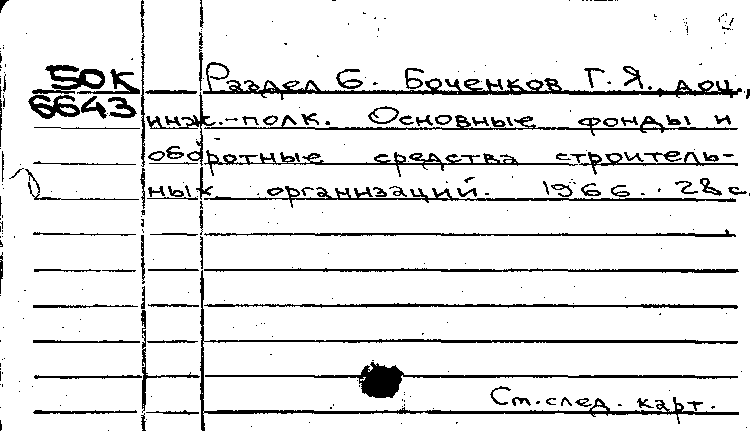 50К Раздел 6. Боченков Г.Я., доц.,
6643 инж.-полк. Основные фонды и
оборотные средства строитель-
ных организаций. 1966. 28 с.
См. след. карт.